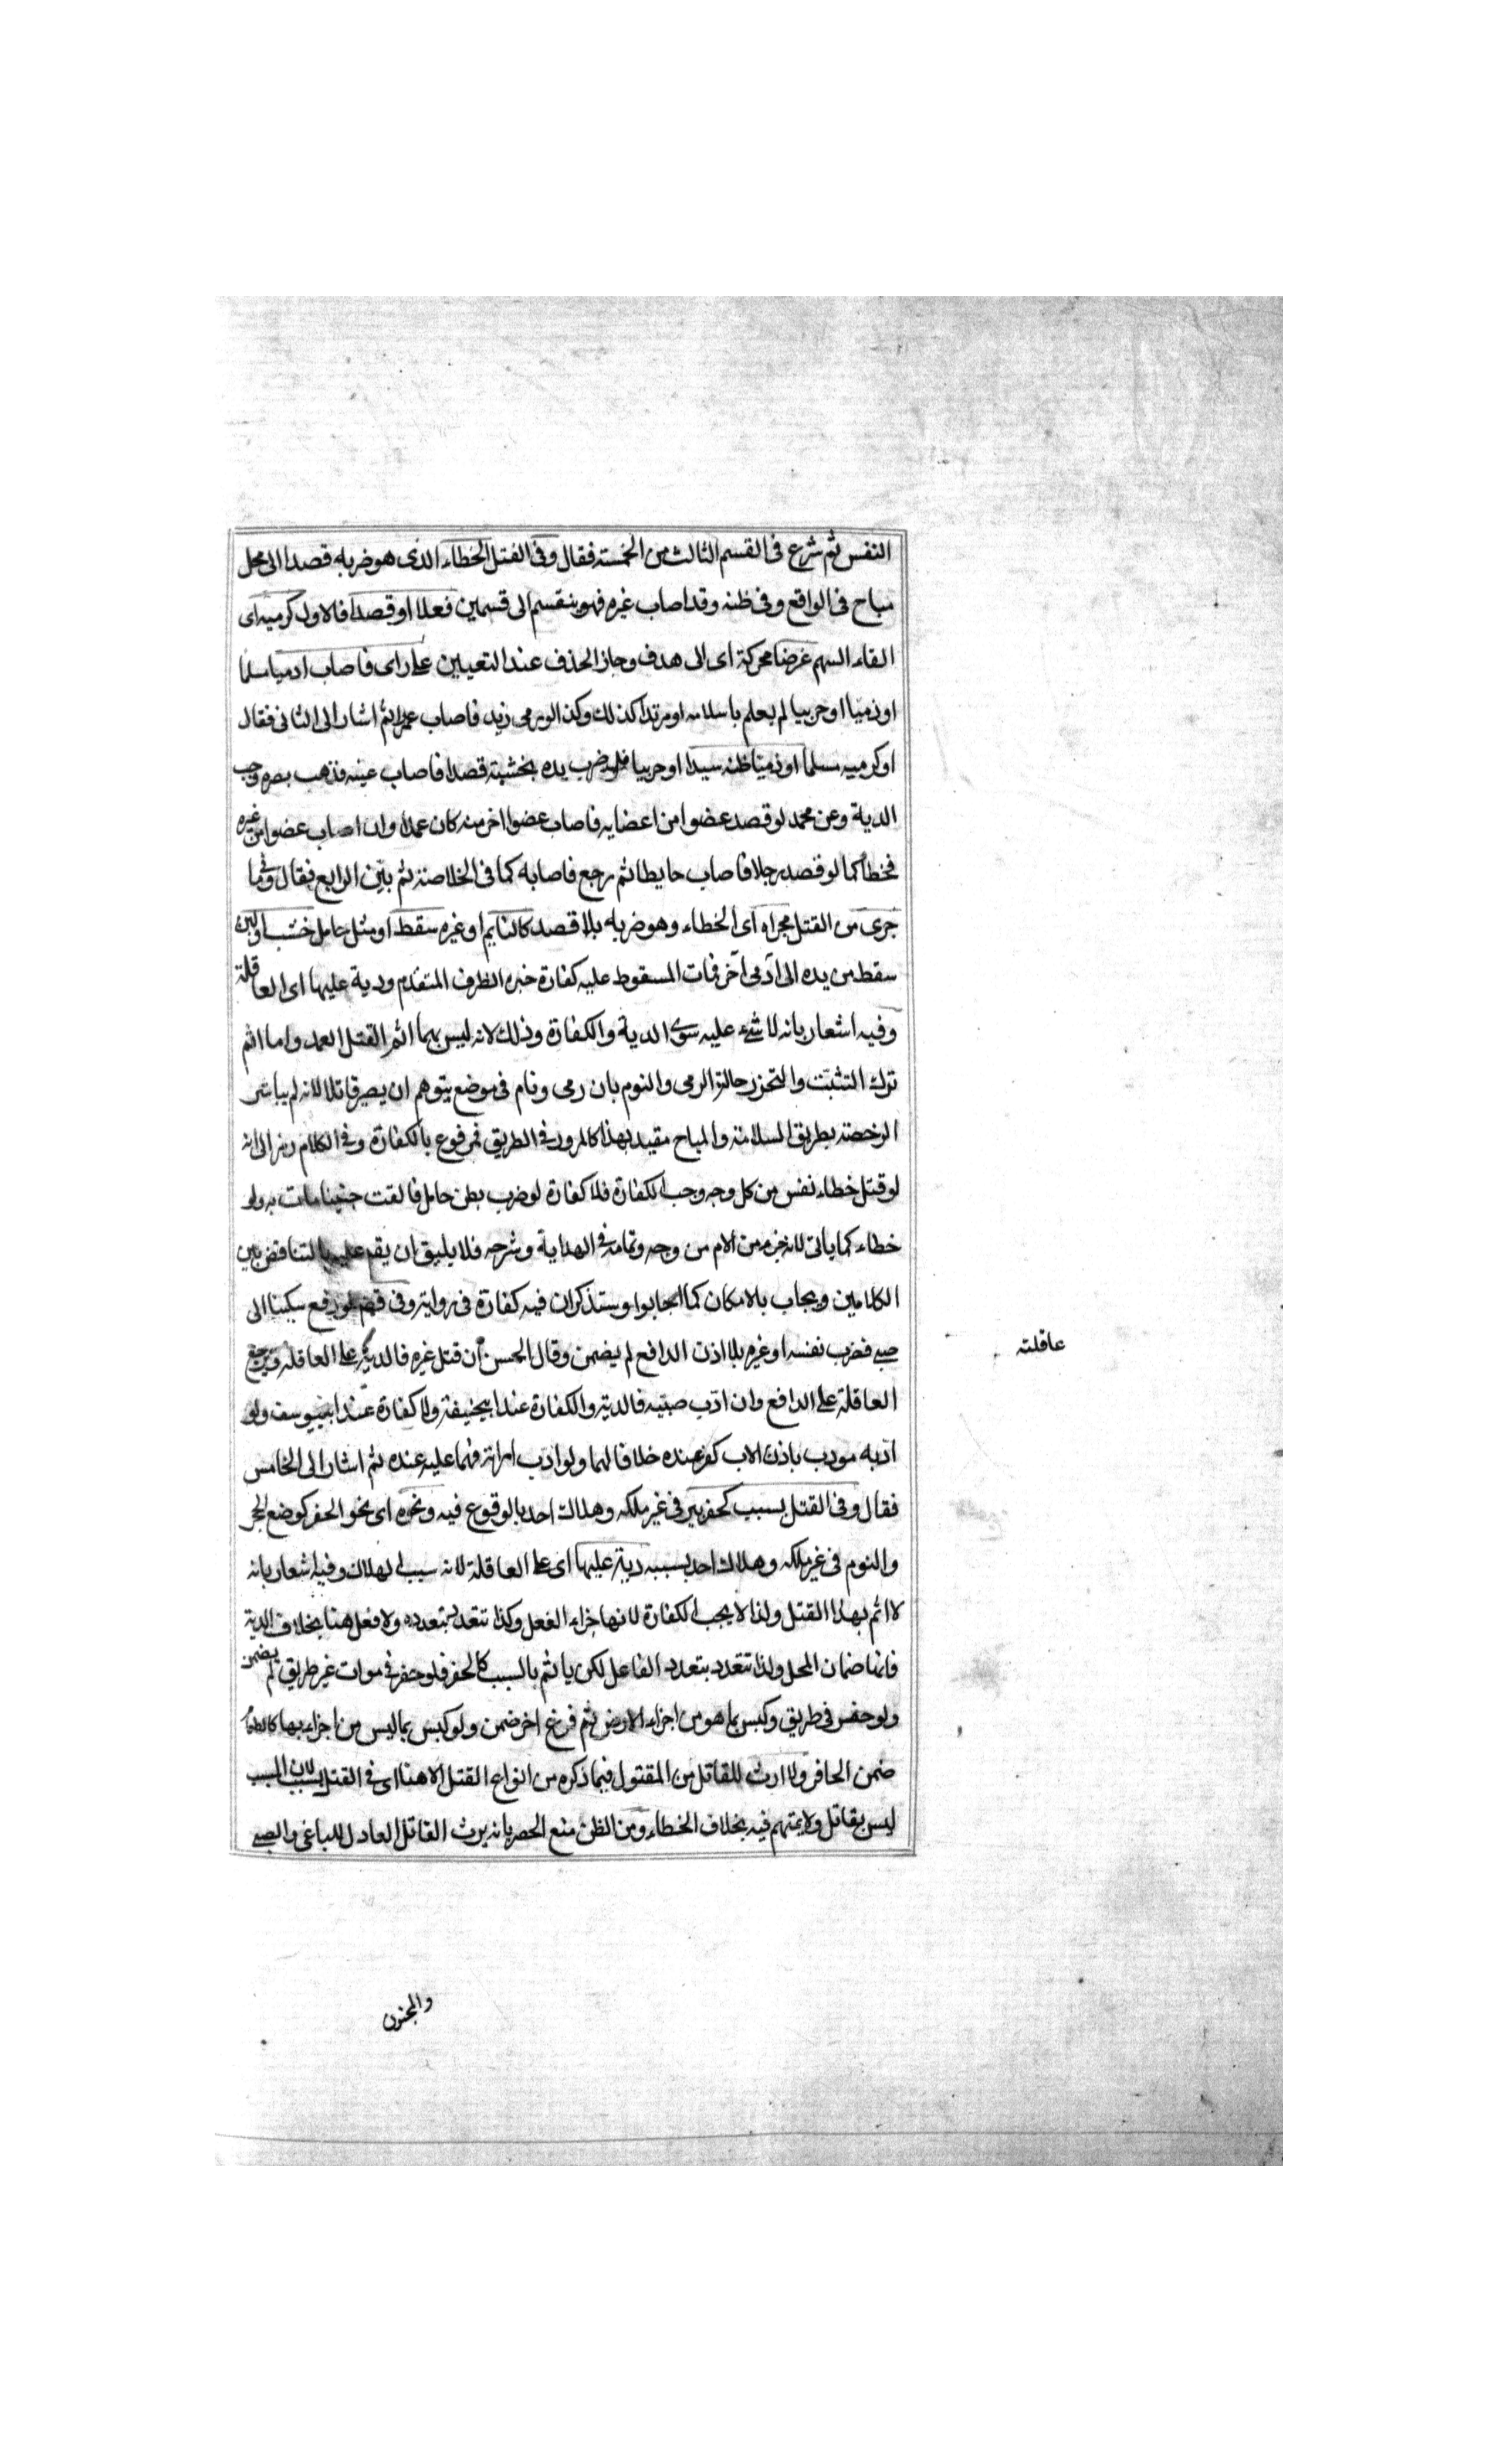 النفس ثم شرع فى القسم الثالث من الخمسة فقال وفى القتل الخطاء الذى هو ضربه قصدا الى محل
مباح فى الواقع وفى ظنه وقد اصاب غيره فهو ينقسم الى قسمين فعلا او قصدا فالاول كرميه اى
القاء السهم غرضا محركة اى الى هدف وجاز الحذف عند التعيين على راى فاصاب ادميا مسلما
او ذميا او حربيا لم يعلم باسلامه او مرتدا كذلك وكذا لو رمى زيد فاصاب عمرا ثم اشار الى الثانى فقال
او كرميه مسلما او ذميا ظنه سيدا او حربيا فلو ضرب يده بخشبة قصدا فاصاب عينه فذهب بصره وجب
الدية وعن محمد لو قصد عضوا من اعضايه فاصاب عضوا اخر منه كان عمدا وان اصاب عضوا من غيره
فخطأ كما لو قصد رجلا فاصاب حايطا ثم رجع فاصابه كما فى الخلاصة ثم بيّن الرابع فقال وفى ما
جرى من القتل مجراه اى الخطاء وهو ضربه بلا قصد كالنايم او غيره سقط او مثل حامل خشب او لبن
سقط من يده الى آدمى آخر فمات المسقوط عليه كفارة خبره الظرف المتقدم ودية عليها اى العاقلة
وفيه اشعار بانه لا شىء عليه سوى الدية والكفارة وذلك لانه ليس بهما اثم القتل العمد واما اثم
ترك التثبت والتحرز حالة الرمى والنوم بان رمى ونام فى موضع يتوهم ان يصير قاتلا لانه لم يباشر
الرخصة بطريق السلامة والمباح مقيد بهذا كالمرور فى الطريق فمرفوع بالكفارة وفى الكلام رمز الى انه
لو قتل خطاء نفس من كل وجه وجب الكفارة فلا كفارة لو ضرب بطن حامل فالقت جنينا مات به ولو
خطاء كما ياتى لانه جزء من الام من وجه وتمامه فى الهداية وشرحه فلا يليق ان يقم عليها بالتناقض بين
الكلامين ويجاب بالامكان كما اجابوا وستذكر ان فيه كفارة فى رواية وفى لو رفع سكينا الى
صبى فضرب نفسه او غيره بلا اذن الدافع لم يضمن وقال الحسن ان قتل غيره فالدية على العاقلة ويرجع
العاقلة على الدافع وان ادّب صبيه فالدية والكفارة عند ابيحنيفة ولا كفارة عند ابييوسف ولو
ادّبه مودب باذن الاب كفر عنده خلافا لهما ولو ادّب امراته فهما عليه عنده ثم اشار الى الخامس
فقال وفى القتل بسبب كحفر بير فى غير ملكه وهلاك احد بالوقوع فيه ونحوه اى نحو الحفر كوضع الحجر
والنوم فى غير ملكه وهلاك احد بسببه دية عليها اى على العاقلة لانه سبب الهلاك وفيه اشعار بانه
لا اثم بهذا القتل ولذا لا يجب الكفارة لانها جزاء الفعل وكذا تتعدد بتعدده ولا فعل هنا بخلاف الدية
فانها ضمان المحل ولذا تتعدد بتعدد الفاعل لكن ياثم بالسبب كالحفر فلو حفر فى موات غير طريق لم يضمن
ولو حفر فى طريق وكبس بما هو من اجزاء الارض ثم فرغ اخر ضمن ولو كبس بما ليس من اجزاءها كالطعام
ضمن الحافر ولا ارث للقاتل من المقتول فيما ذكره من انواع القتل الا هنا اى فى القتل بسبب لان المسبب
ليس بقاتل ولا يتهم فيه بخلاف الخطاء ومن الظن منع الحصر بانه يرث القاتل العادل للباغى والصبى
عاقلته
والمجنون